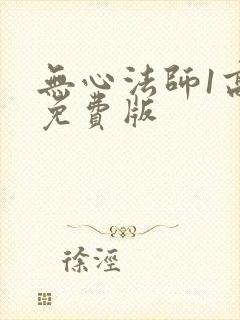 無心法師1高
免費版
徐涇